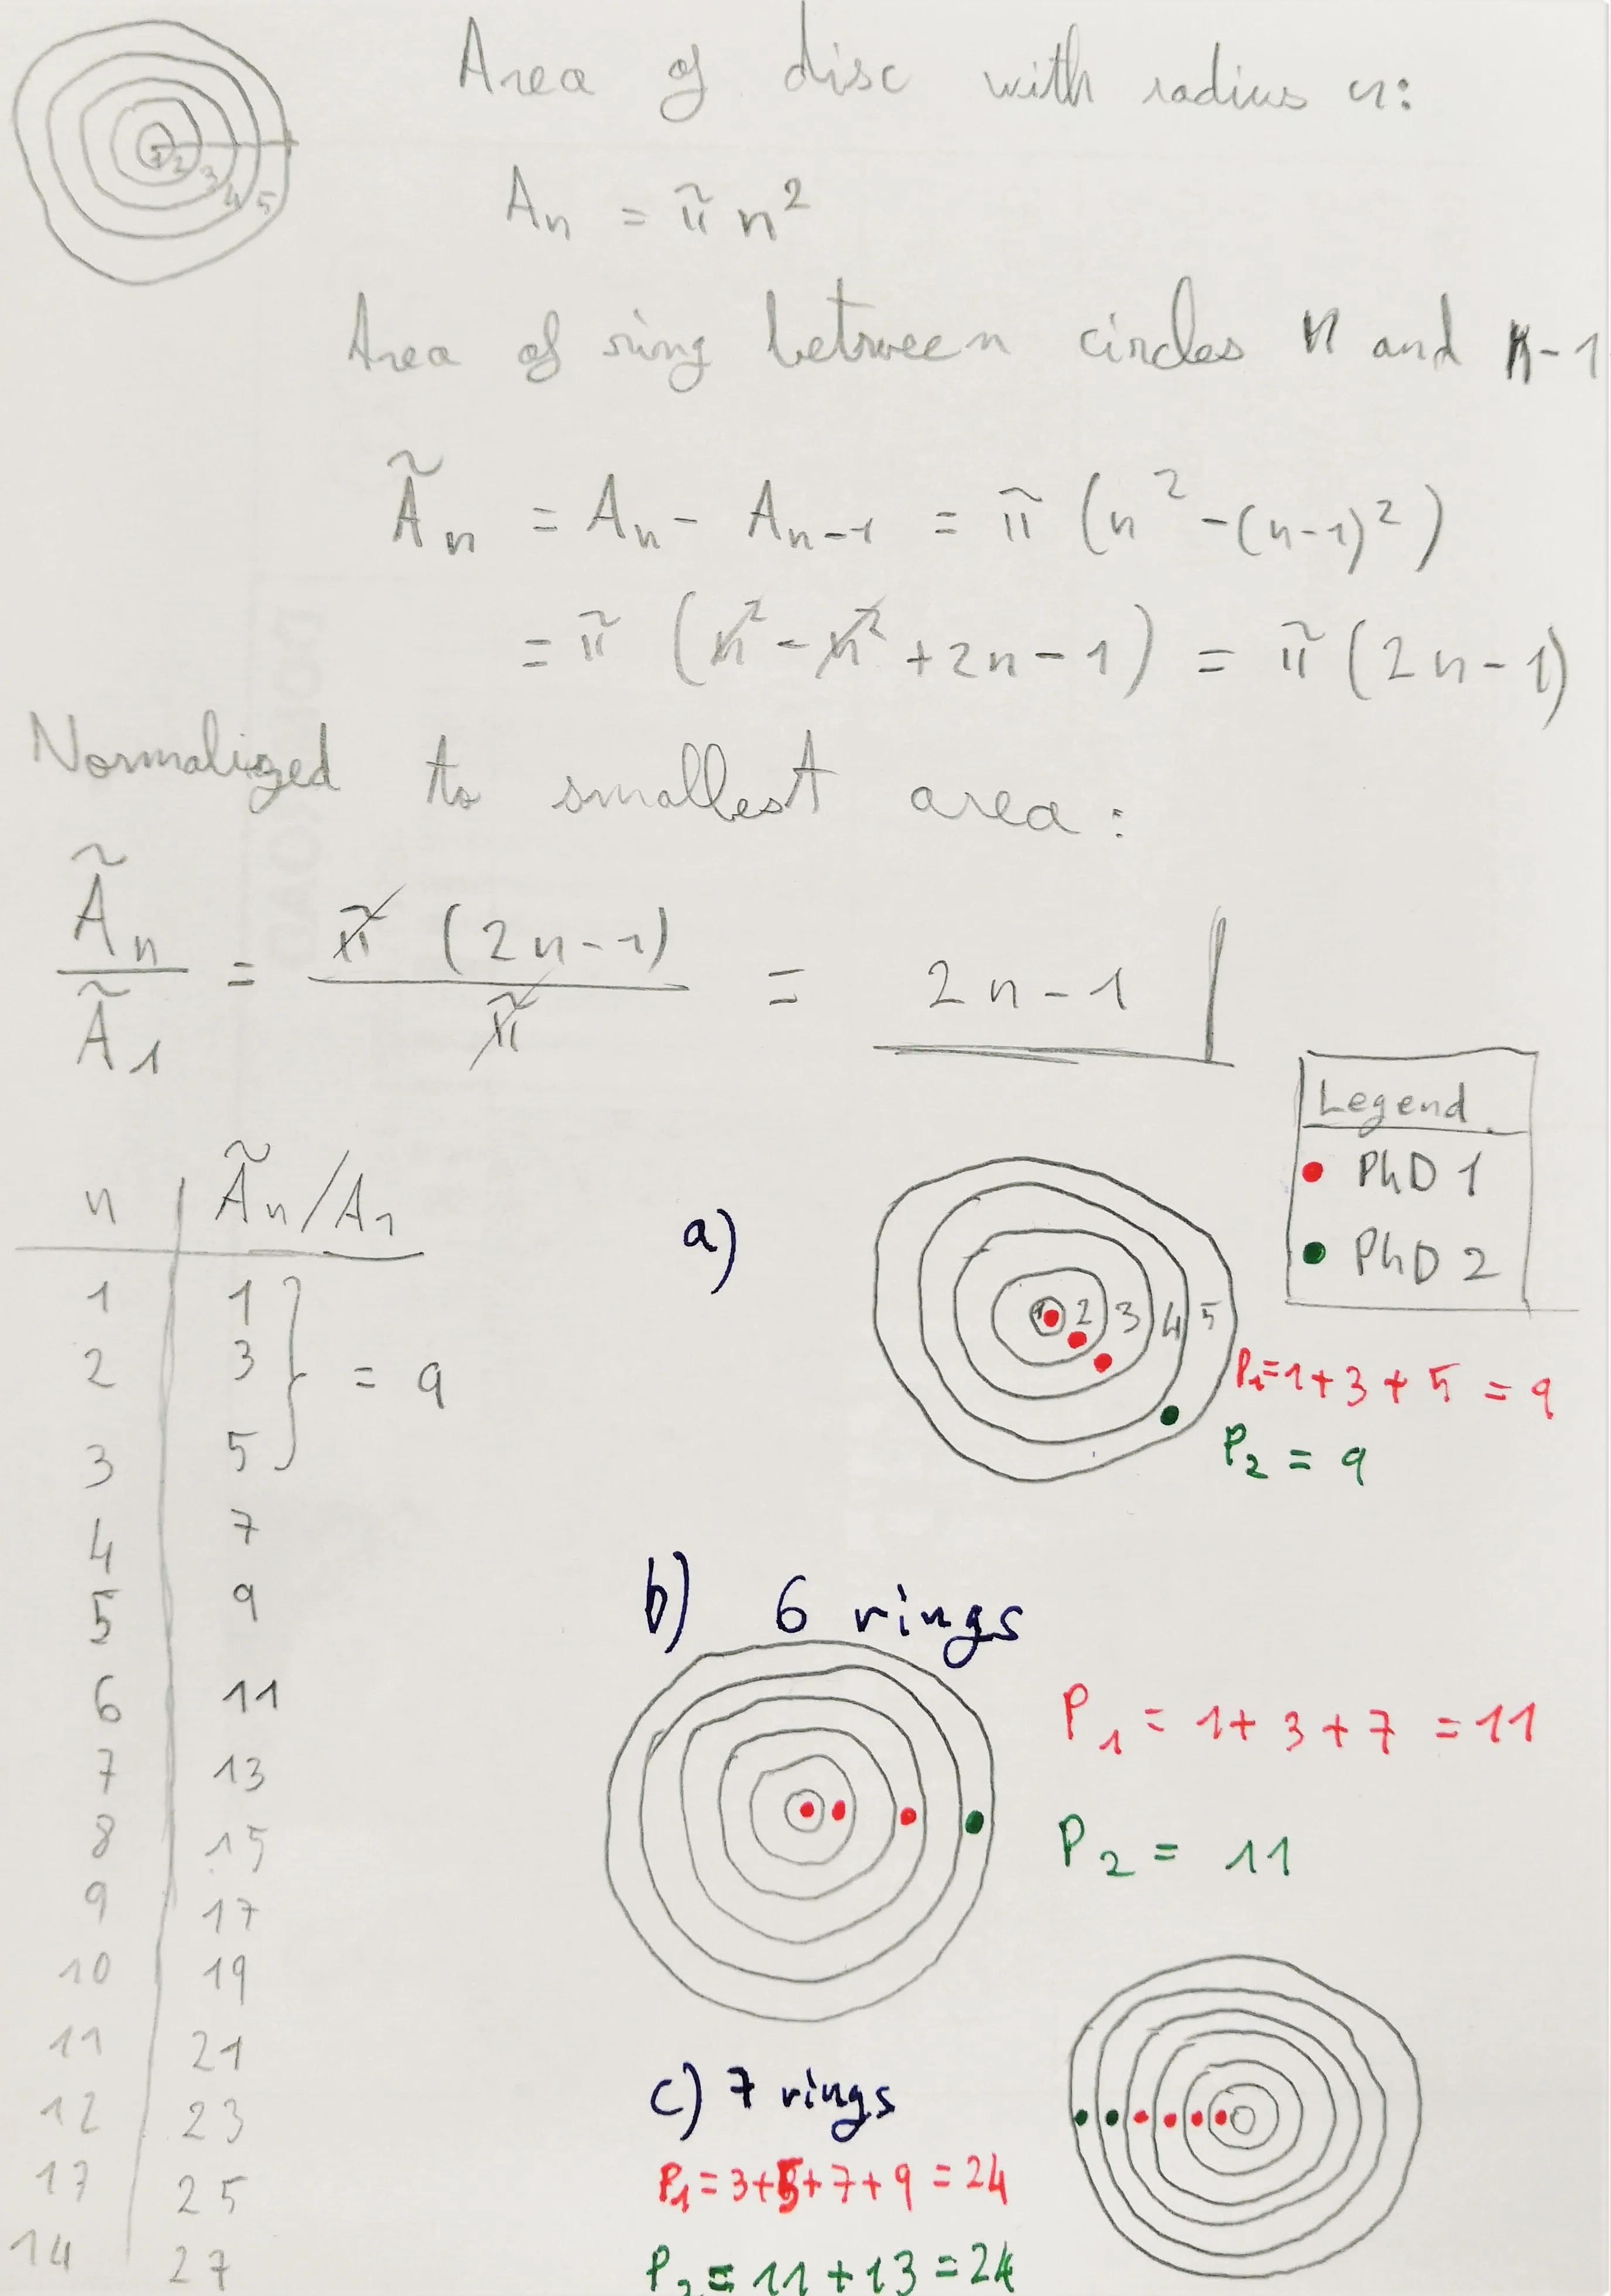 1 2 3 4 5
Area of disc with radius n:
Aₙ = π n²
Area of ring between circles n and n-1
Ãₙ = Aₙ - Aₙ₋₁ = π (n² - (n-1)²)
= π (n² - n² + 2n - 1) = π (2n - 1)
Normalized to smallest area:
Ãₙ / Ã₁ = π (2n-1) / π = 2n - 1
Legend
PhD 1
PhD 2
n Ãₙ/A₁
1 1
2 3
3 5
} = 9
4 7
5 9
6 11
7 13
8 15
9 17
10 19
11 21
12 23
17 25
14 27
a)
1 2 3 4 5
P₁=1+3+5=9
P₂ = 9
b) 6 rings
P₁ = 1+3+7=11
P₂ = 11
c) 7 rings
P₁=3+5+7+9=24
P₂=11+13=24